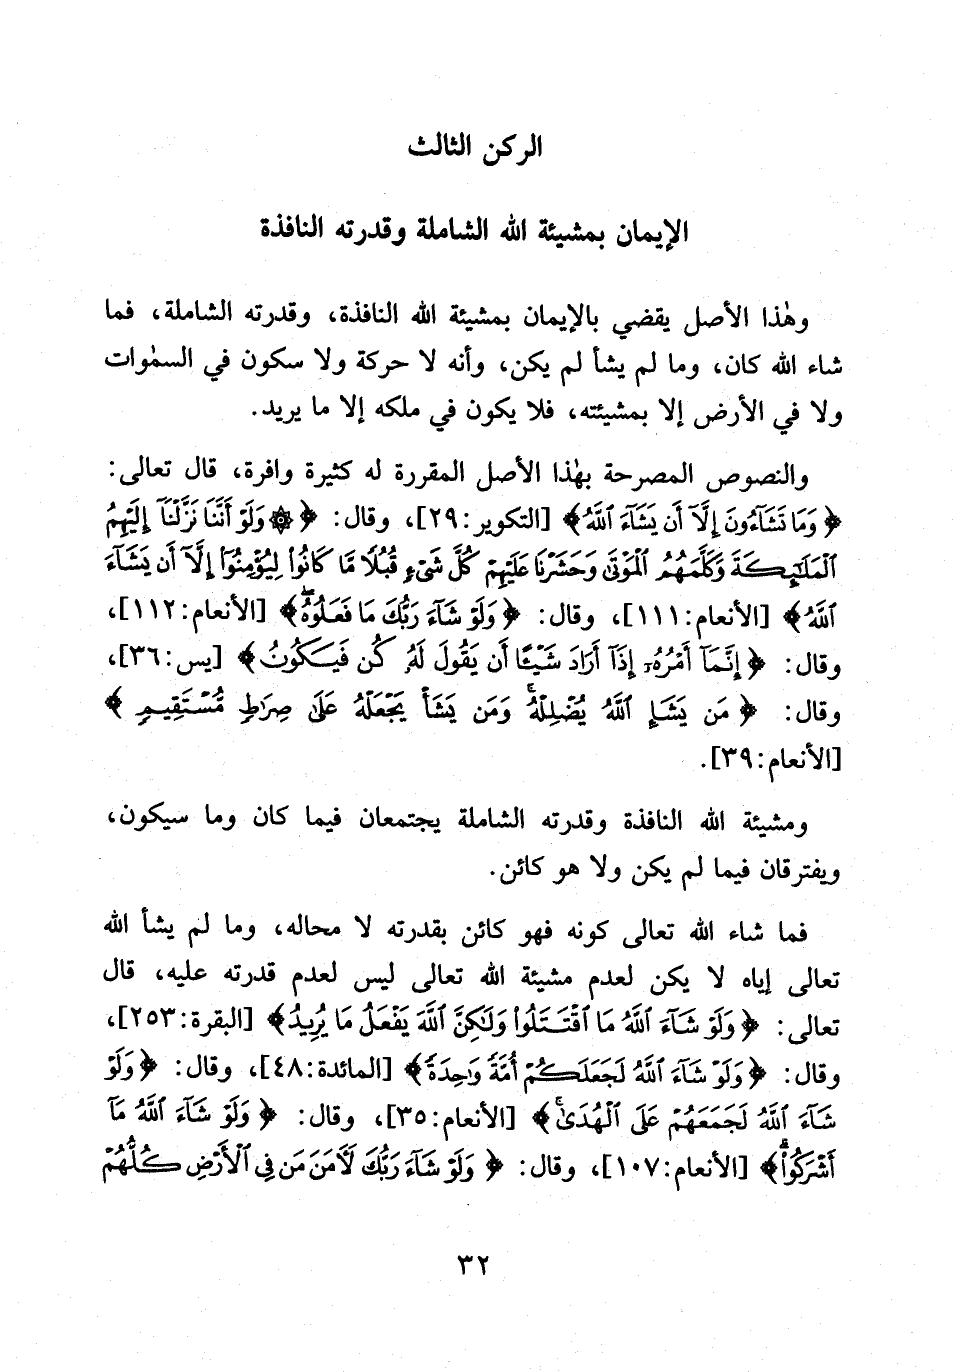 الركن الثالث
الإيمان بمشيئة الله الشاملة وقدرته النافذة
وهٰذا الأصل يقضي بالإيمان بمشيئة الله النافذة، وقدرته الشاملة، فما
شاء الله كان، وما لم يشأ لم يكن، وأنه لا حركة ولا سكون في السمٰوات
ولا في الأرض إلا بمشيئته، فلا يكون في ملكه إلا ما يريد.
والنصوص المصرحة بهٰذا الأصل المقررة له كثيرة وافرة، قال تعالى:
﴿وَمَا تَشَآءُونَ إِلَّآ أَن يَشَآءَ ٱللَّهُ﴾ [التكوير:٢٩]، وقال: ﴿۞ وَلَوْ أَنَّنَا نَزَّلْنَآ إِلَيْهِمُ
ٱلْمَلَٰٓئِكَةَ وَكَلَّمَهُمُ ٱلْمَوْتَىٰ وَحَشَرْنَا عَلَيْهِمْ كُلَّ شَىْءٍ قُبُلًا مَّا كَانُوا۟ لِيُؤْمِنُوٓا۟ إِلَّآ أَن يَشَآءَ
ٱللَّهُ﴾ [الأنعام:١١١]، وقال: ﴿وَلَوْ شَآءَ رَبُّكَ مَا فَعَلُوهُ ۖ﴾ [الأنعام:١١٢]،
وقال: ﴿إِنَّمَآ أَمْرُهُۥٓ إِذَآ أَرَادَ شَيْـًٔا أَن يَقُولَ لَهُۥ كُن فَيَكُونُ﴾ [يس:٣٦]،
وقال: ﴿مَن يَشَإِ ٱللَّهُ يُضْلِلْهُ ۚ وَمَن يَشَأْ يَجْعَلْهُ عَلَىٰ صِرَٰطٍ مُّسْتَقِيمٍ﴾
[الأنعام:٣٩].
ومشيئة الله النافذة وقدرته الشاملة يجتمعان فيما كان وما سيكون،
ويفترقان فيما لم يكن ولا هو كائن.
فما شاء الله تعالى كونه فهو كائن بقدرته لا محاله، وما لم يشأ الله
تعالى إياه لا يكن لعدم مشيئة الله تعالى ليس لعدم قدرته عليه، قال
تعالى: ﴿وَلَوْ شَآءَ ٱللَّهُ مَا ٱقْتَتَلُوا۟ وَلَٰكِنَّ ٱللَّهَ يَفْعَلُ مَا يُرِيدُ﴾ [البقرة:٢٥٣]،
وقال: ﴿وَلَوْ شَآءَ ٱللَّهُ لَجَعَلَكُمْ أُمَّةً وَٰحِدَةً﴾ [المائدة:٤٨]، وقال: ﴿وَلَوْ
شَآءَ ٱللَّهُ لَجَمَعَهُمْ عَلَى ٱلْهُدَىٰ ۚ﴾ [الأنعام:٣٥]، وقال: ﴿وَلَوْ شَآءَ ٱللَّهُ مَآ
أَشْرَكُوا۟ ۗ﴾ [الأنعام:١٠٧]، وقال: ﴿وَلَوْ شَآءَ رَبُّكَ لَءَامَنَ مَن فِى ٱلْأَرْضِ كُلُّهُمْ
٣٢